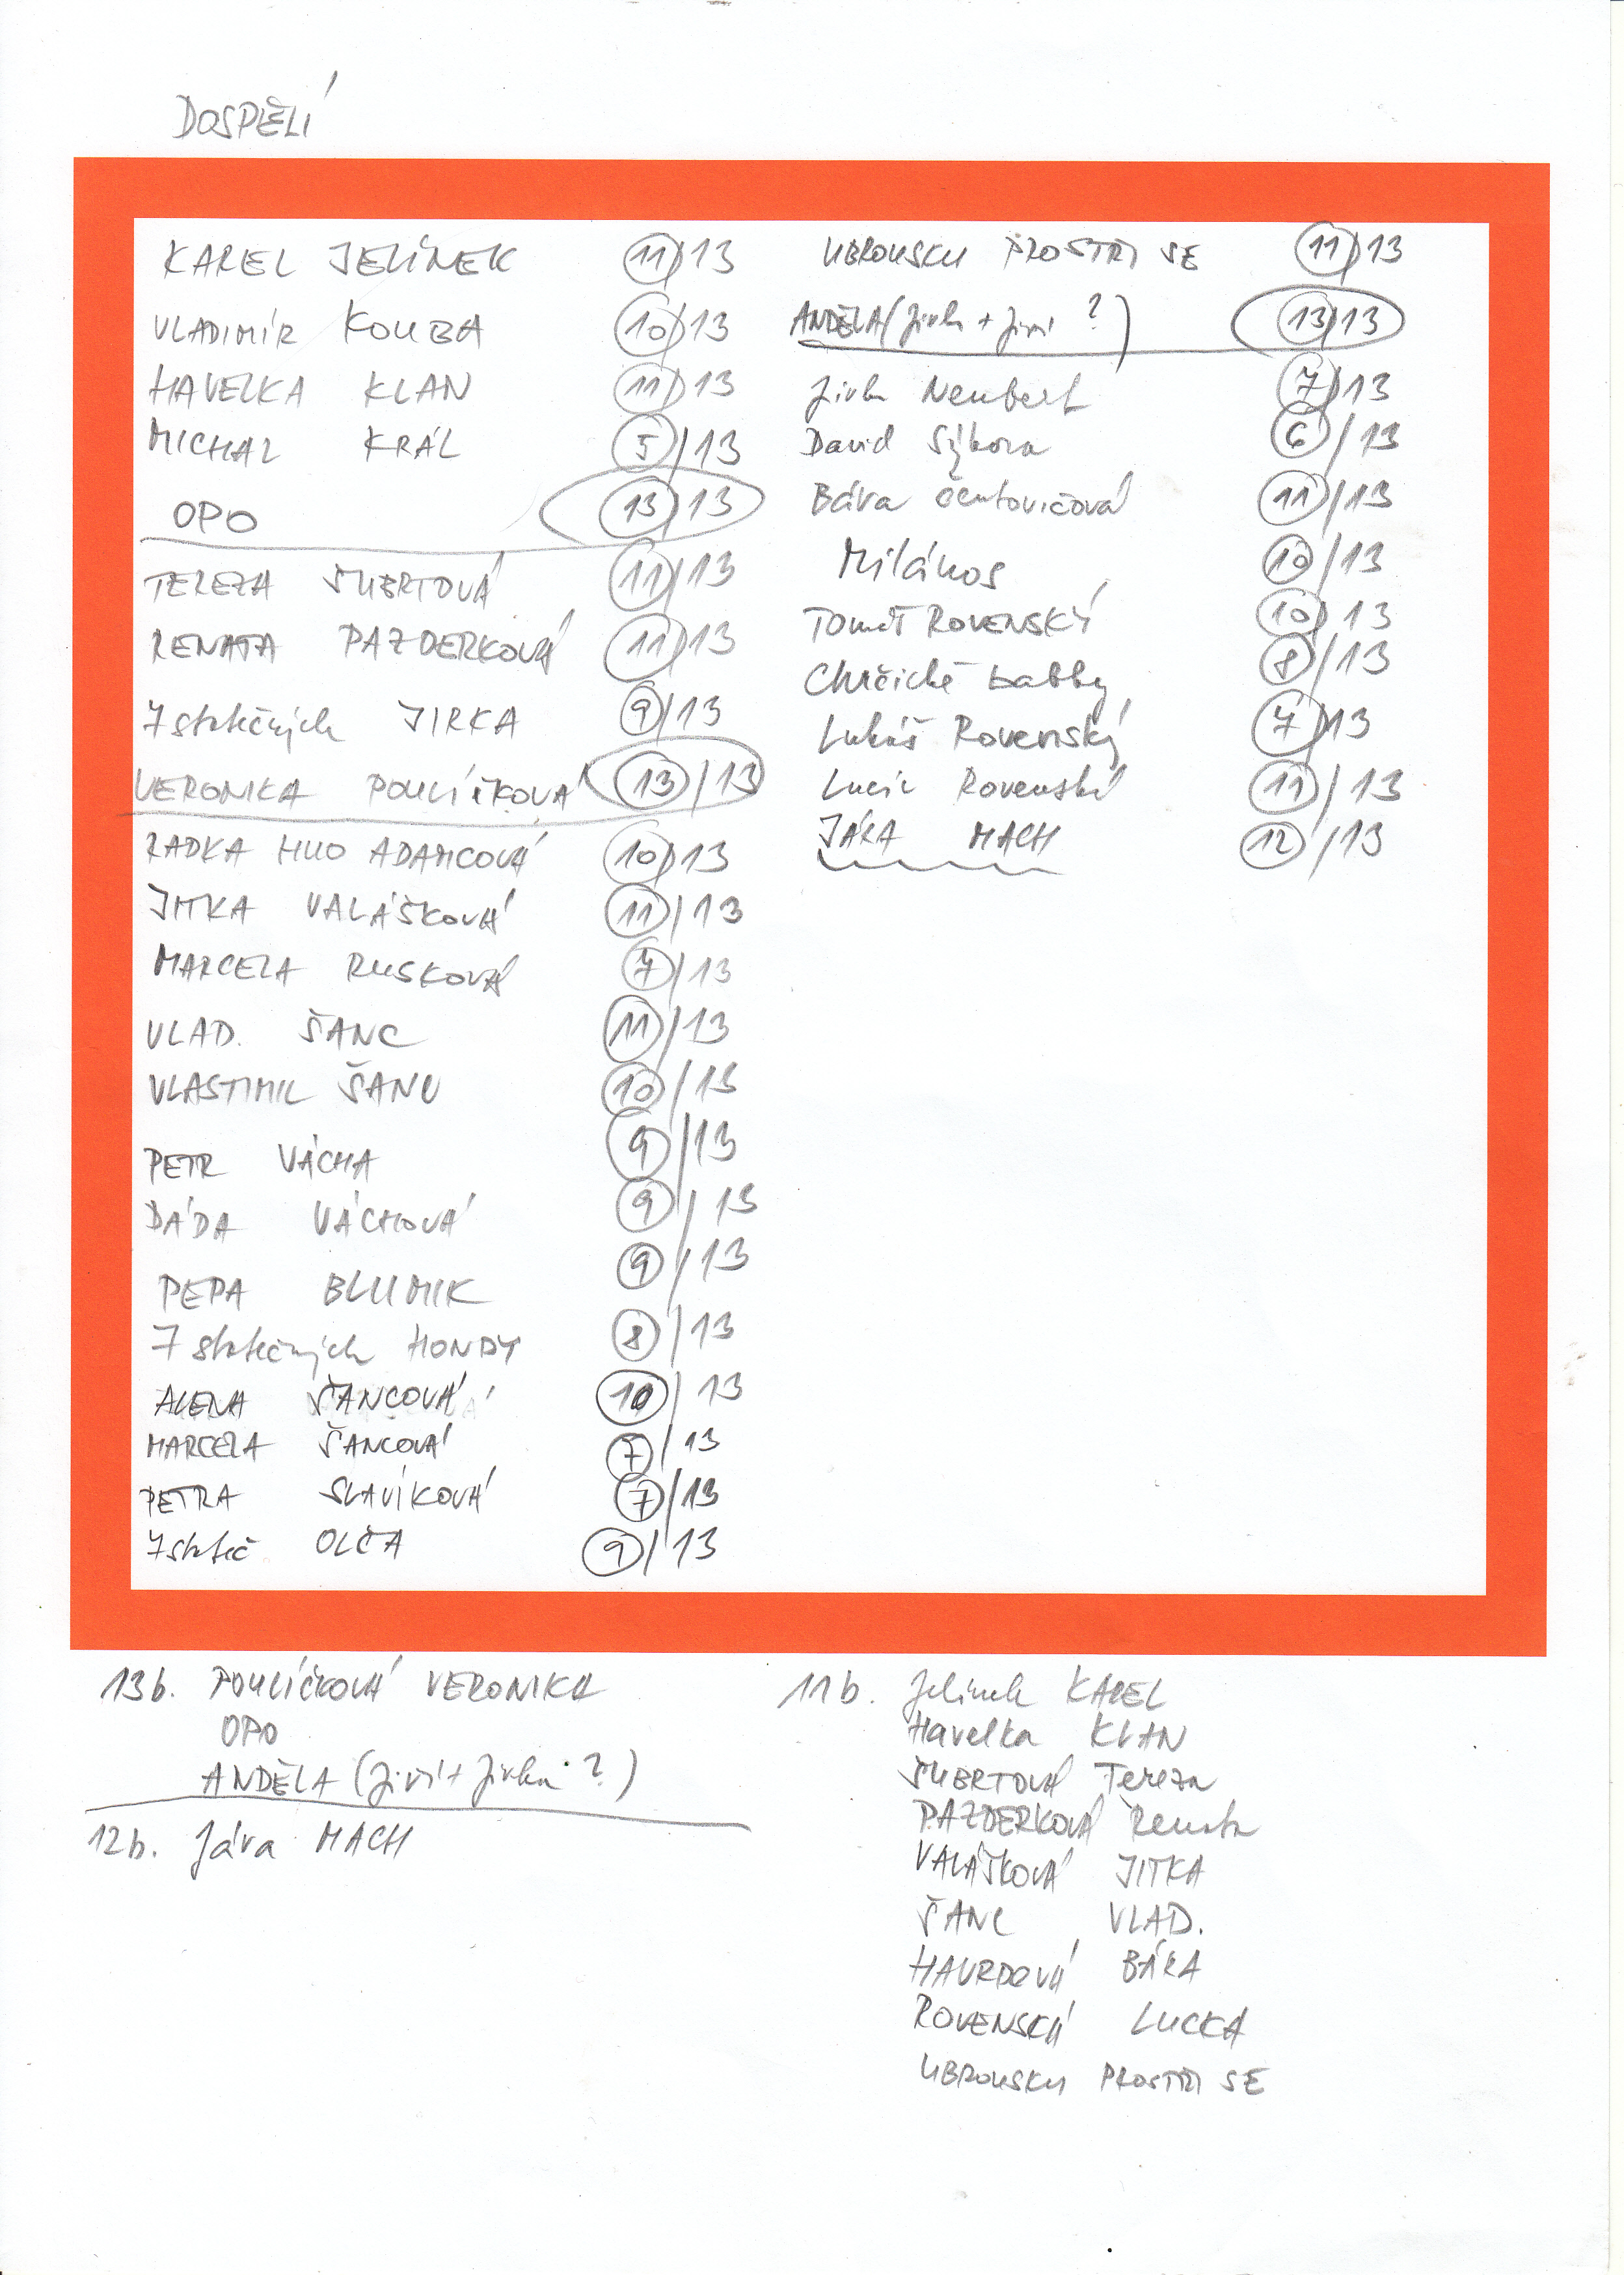 DOSPĚLÍ
KAREL JELÍNEK 11/13
VLADIMÍR KOUBA 10/13
HAVELKA KLAN 11/13
MICHAL KRÁL 5/13
OPO 13/13
TEREZA ŠUBRTOVÁ 11/13
RENATA PAZDERKOVÁ 11/13
7 statečných JIRKA 9/13
VERONIKA POULÍČKOVÁ 13/13
RADKA ADAMCOVÁ 10/13
JITKA VALÁŠKOVÁ 11/13
MARCELA RUSKOVÁ 7/13
VLAD. ŠANC 11/13
VLASTIMIL ŠANC 10/13
PETR VÁCHA 9/13
DÁĎA VÁCHOVÁ 9/13
PEPA BLUMIK 9/13
7 statečných HONDY 8/13
ALENA ŠANCOVÁ 10/13
MARCELA ŠANCOVÁ 7/13
PETRA SLAVÍKOVÁ 7/13
7 stateč OLČA 9/13
UBROUSKU PROSTŘI SE 11/13
ANDĚLA (Jirka + Jiří ?) 13/13
Jirka Neubert 7/13
David Sýkora 6/13
Bára 11/13
Milános 10/13
TOMÁŠ ROVENSKÝ 10/13
Chrčické babky 8/13
Lukáš Rovenský 7/13
Lucie Rovenská 11/13
JÁRA MACH 12/13
13b. POULÍČKOVÁ VERONIKA
OPO
ANDĚLA (Jiří + Jirka ?)
12b. Jára MACH
11b. Jelínek KAREL
Havelka KLAN
ŠUBRTOVÁ Tereza
PAZDERKOVÁ Renata
VALÁŠKOVÁ JITKA
ŠANC VLAD.
HAVRDOVÁ BÁRA
ROVENSKÁ LUCKA
UBROUSKU PROSTŘI SE